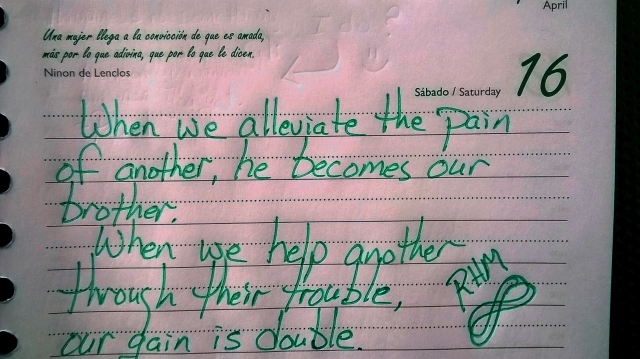 April
Una mujer llega a la convicción de que es amada,
más por lo que adivina, que por lo que le dicen.
Ninon de Lenclos
Sábado / Saturday 16
When we alleviate the pain
of another, he becomes our
brother.
When we help another
through their trouble,
our gain is double.
RHM